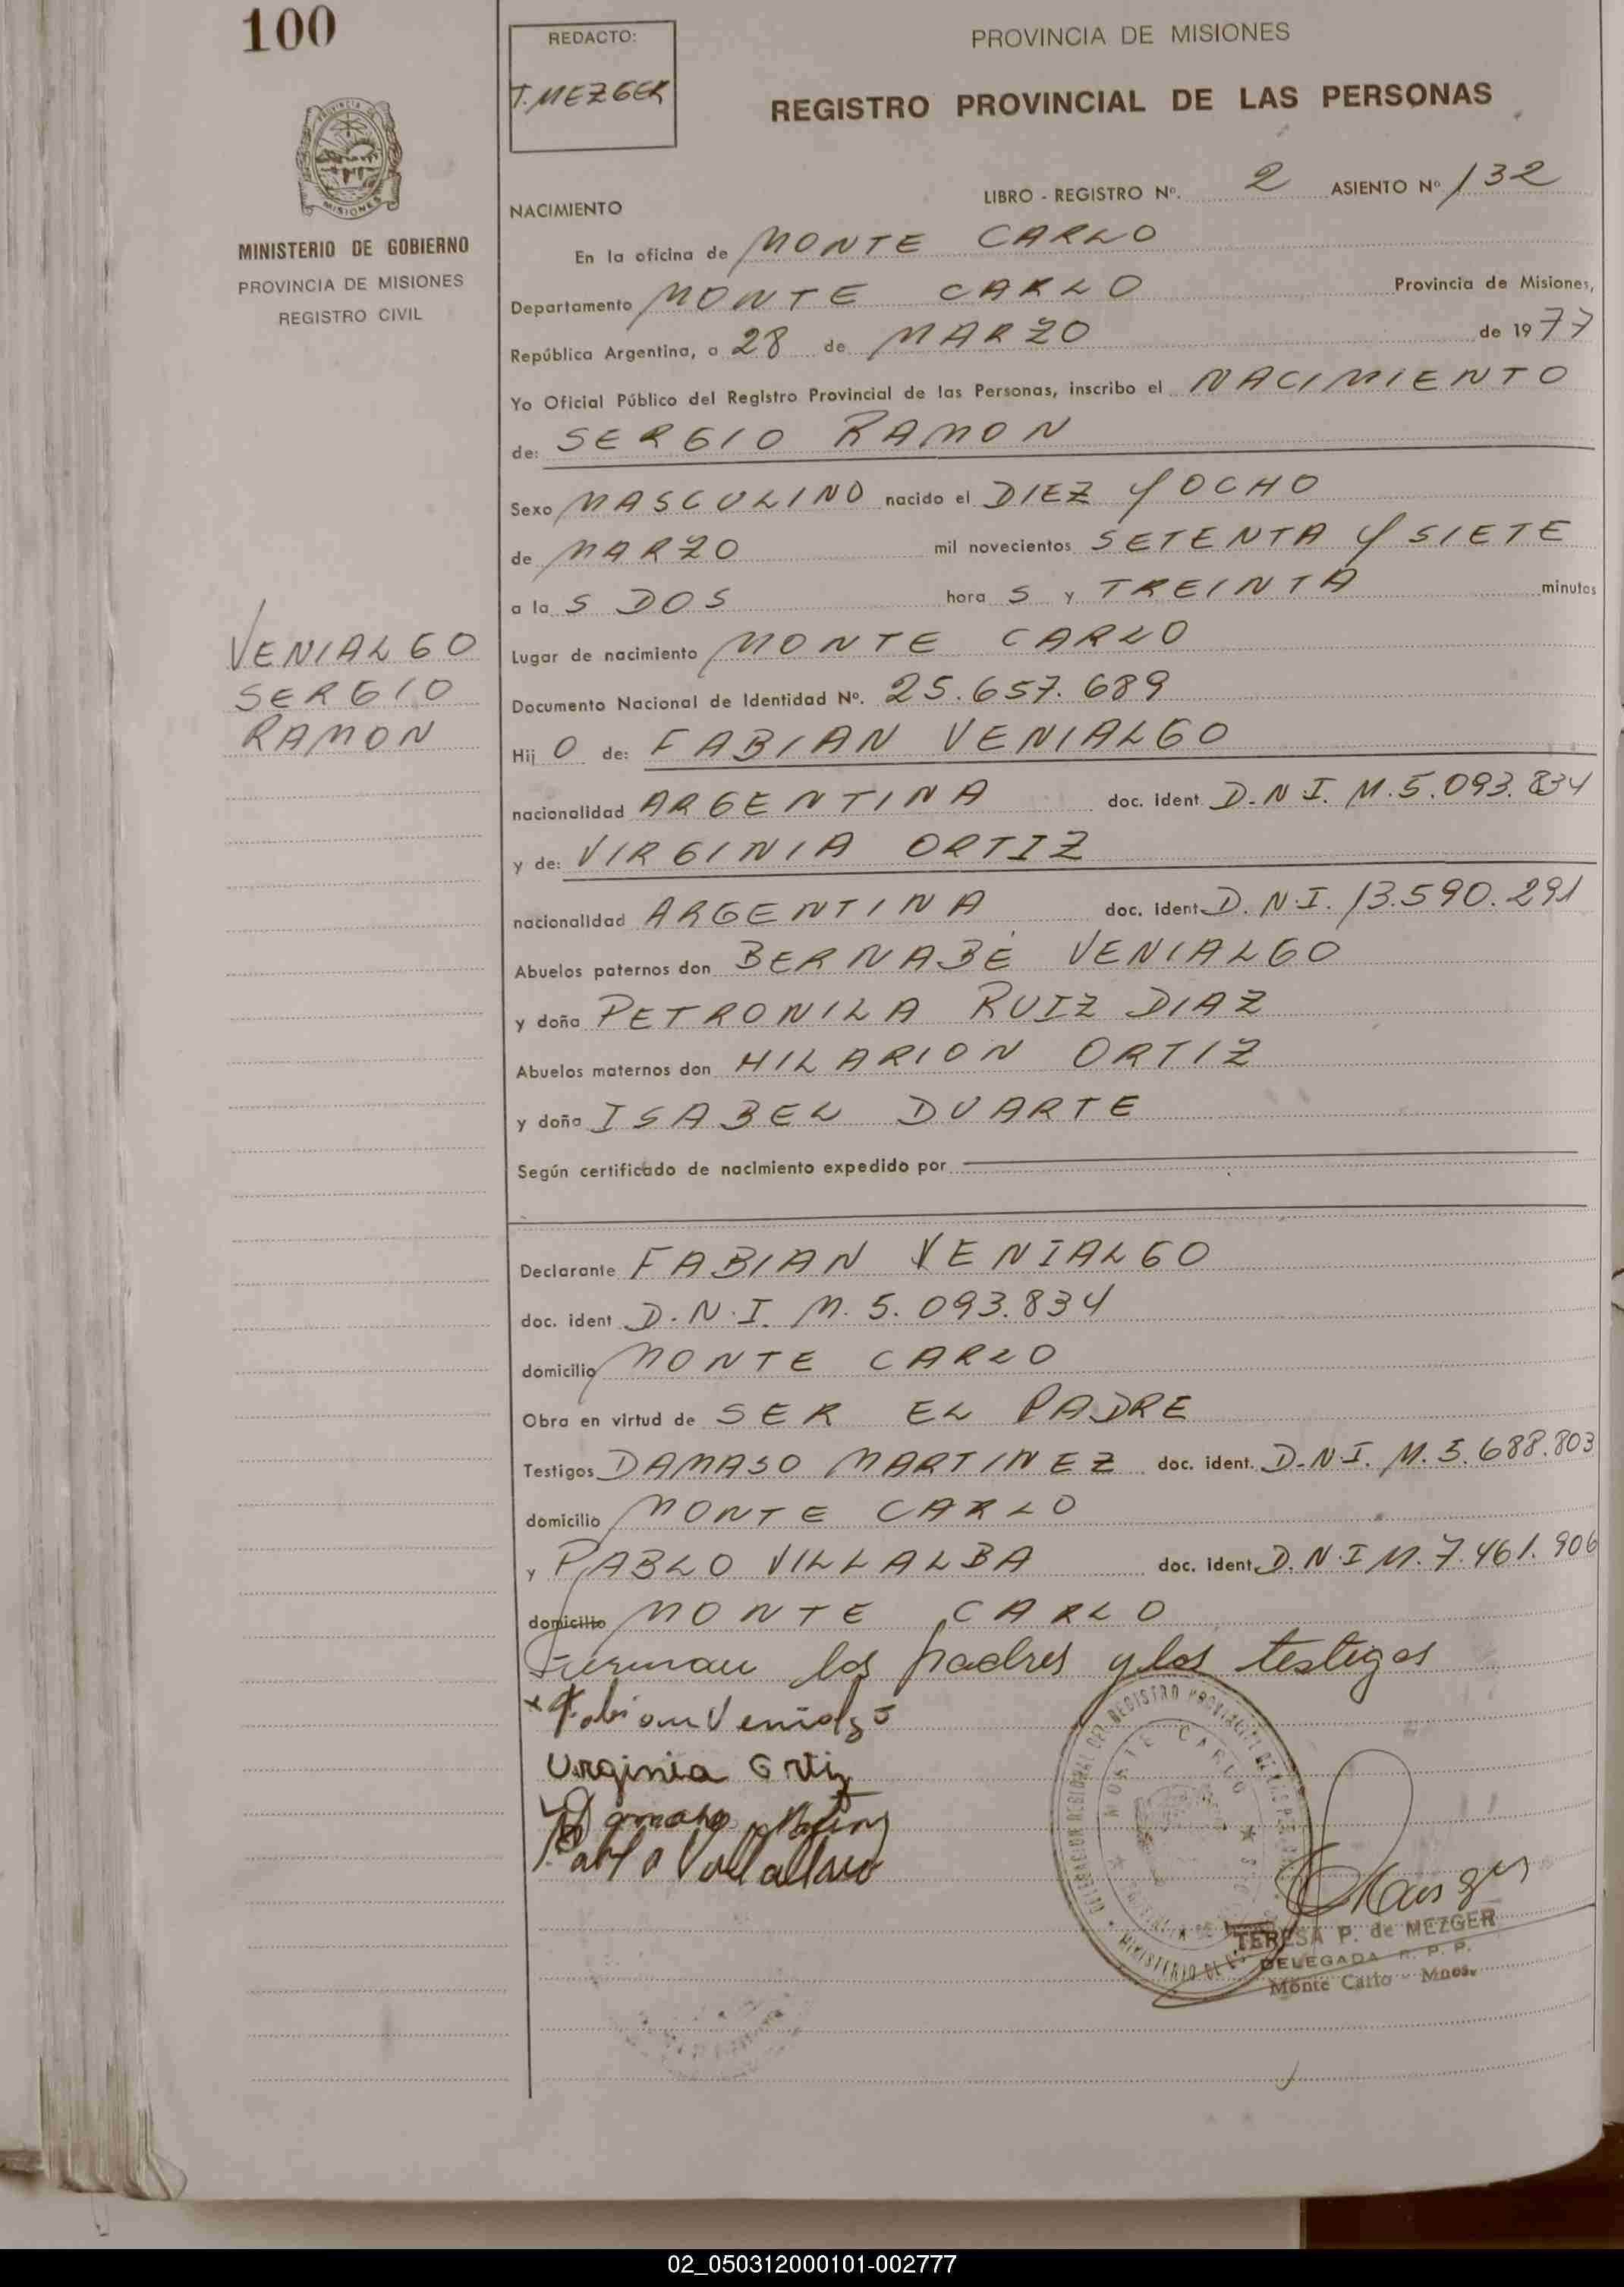 100
REDACTO:
T. MEZGER
PROVINCIA DE MISIONES
REGISTRO PROVINCIAL DE LAS PERSONAS
MISIONES
MINISTERIO DE GOBIERNO
PROVINCIA DE MISIONES
REGISTRO CIVIL
LIBRO - REGISTRO Nº. 2 ASIENTO Nº 132
NACIMIENTO
En la oficina de MONTE CARLO
Departamento MONTE CARLO Provincia de Misiones,
República Argentina, a 28 de MARZO de 1977
Yo Oficial Público del Registro Provincial de las Personas, inscribo el NACIMIENTO
de: SERGIO RAMON
Sexo MASCULINO nacido el DIEZ Y OCHO
de MARZO mil novecientos SETENTA Y SIETE
a la S DOS hora S y TREINTA minutos
VENIALGO
SERGIO
RAMON
Lugar de nacimiento MONTE CARLO
Documento Nacional de Identidad Nº. 25.657.689
Hij O de: FABIAN VENIALGO
nacionalidad ARGENTINA doc. ident. D.N.I. M.5.093.834
y de: VIRGINIA ORTIZ
nacionalidad ARGENTINA doc. ident. D.N.I. 13.590.291
Abuelos paternos don BERNABÉ VENIALGO
y doña PETRONILA RUIZ DIAZ
Abuelos maternos don HILARION ORTIZ
y doña ISABEL DUARTE
Según certificado de nacimiento expedido por
Declarante FABIAN VENIALGO
doc. ident D.N.I. M. 5.093.834
domicilio MONTE CARLO
Obra en virtud de SER EL PADRE
Testigos DAMASO MARTINEZ doc. ident. D.N.I. M.5.688.803
domicilio MONTE CARLO
y PABLO VILLALBA doc. ident. D.N.I M.7.461.906
domicilio MONTE CARLO
Firman los padres y los testigos
Fabian Venialgo
Virginia Ortiz
MONTE CARLO
TERESA P. de MEZGER
DELEGADA R. P. P.
Monte Carlo - Mnes.
02_050312000101-002777